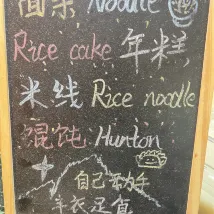 面条 Noodle
Rice cake 年糕
米线 Rice noodle
馄饨 Hunton
自己动手
丰衣足食